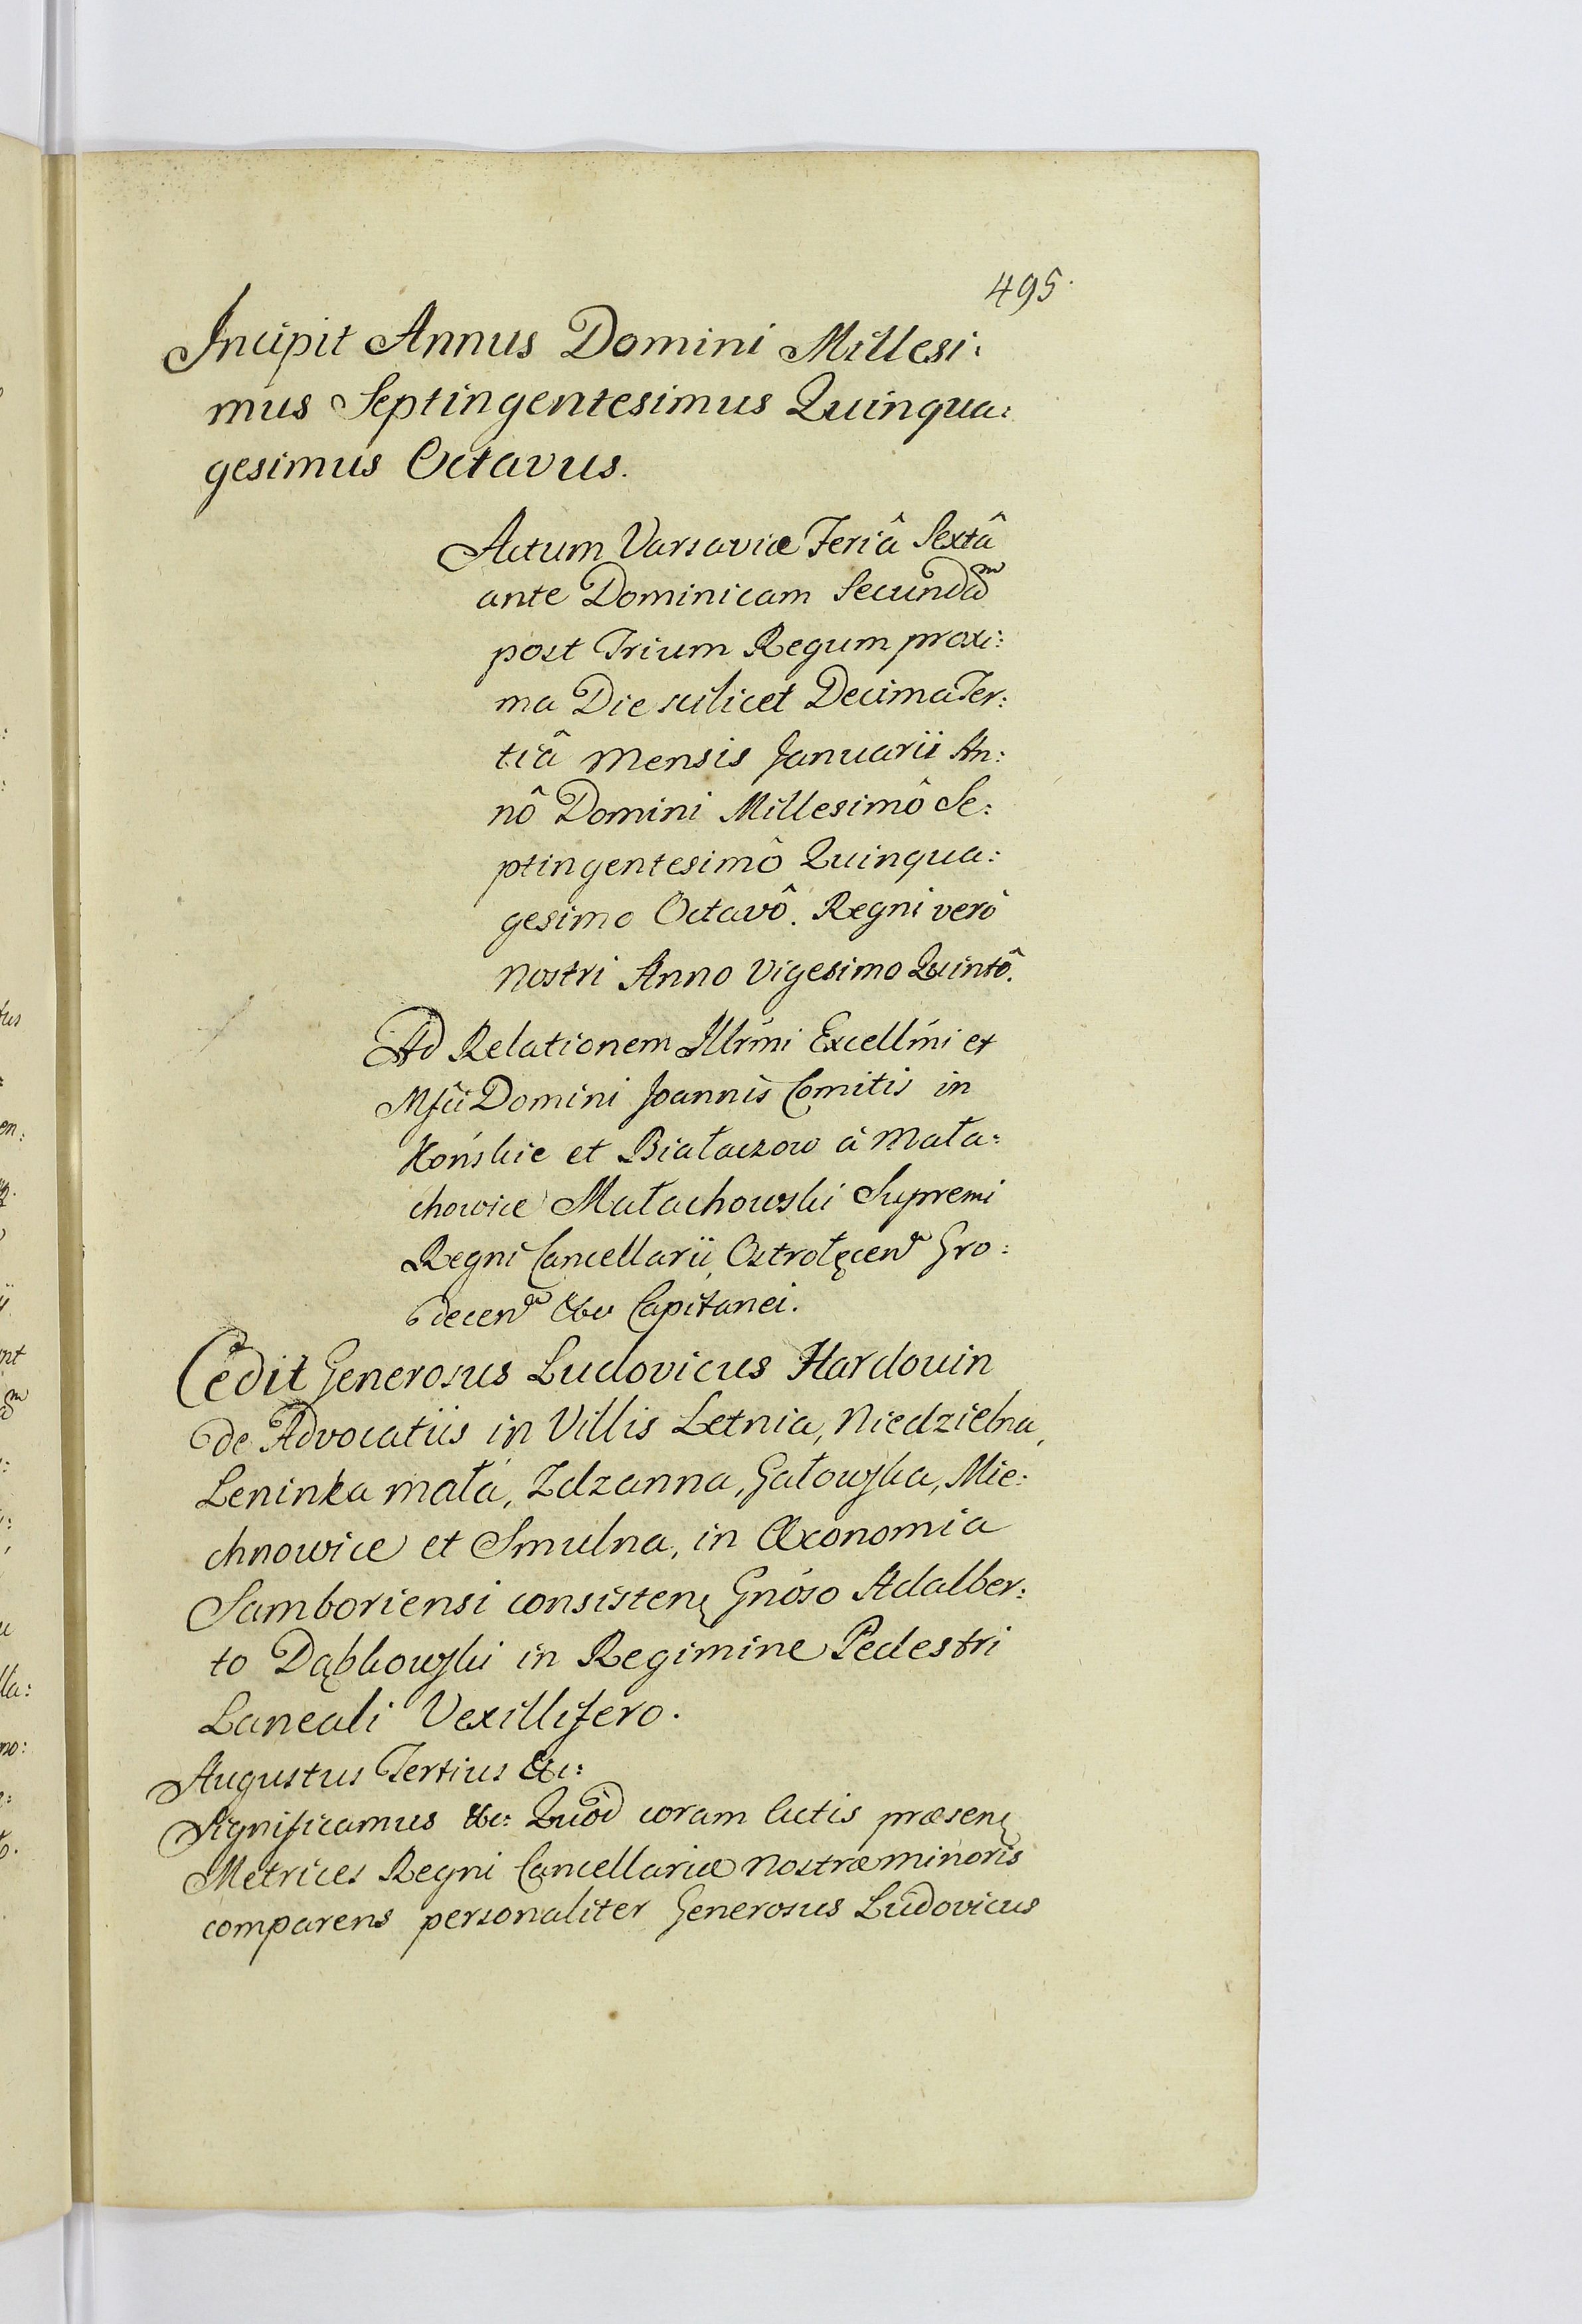 495.
Incipit Annus Domini Millesi:
mus Septingentesimus Quinqua:
gesimus Octavus.
Actum Varsaviæ Feriâ Sextâ
ante Dominicam Secundaᵐ
post Trium Regum proxi:
ma Die scilicet Decima Ter:
tiâ Mensis Januarii An:
nô Domini Millesimô Se:
ptingentesimô Quinqua:
gesimo Octavô. Regni verò
nostri Anno Vigesimo Quintô.
Ad Relationem Illrmi Excellmi et
Mfci Domini Joannis Comitis in
Końskie et Białaczow a Mała:
chowice Małachowski Supremi
Regni Cancellarii, Ostrołęcen Gro:
decen &c Capitanei.
Cedit Generosus Ludovicus Hardouin
de Advocatiis in Villis Letnia, Niedzielna,
Leninka mała, Zdzanna, Gałowska, Mie:
chnowice et Smulna, in Œconomia
Samboriensi consisten Gnoso Adalber:
to Dąbkowski in Regimine Pedestri
Laneali Vexillifero.
Augustus Tertius &c:
Significamus &c: Quòd coram Actis præsen
Metrices Regni Cancellariæ nostræ minoris
comparens personaliter Generosus Ludovicus